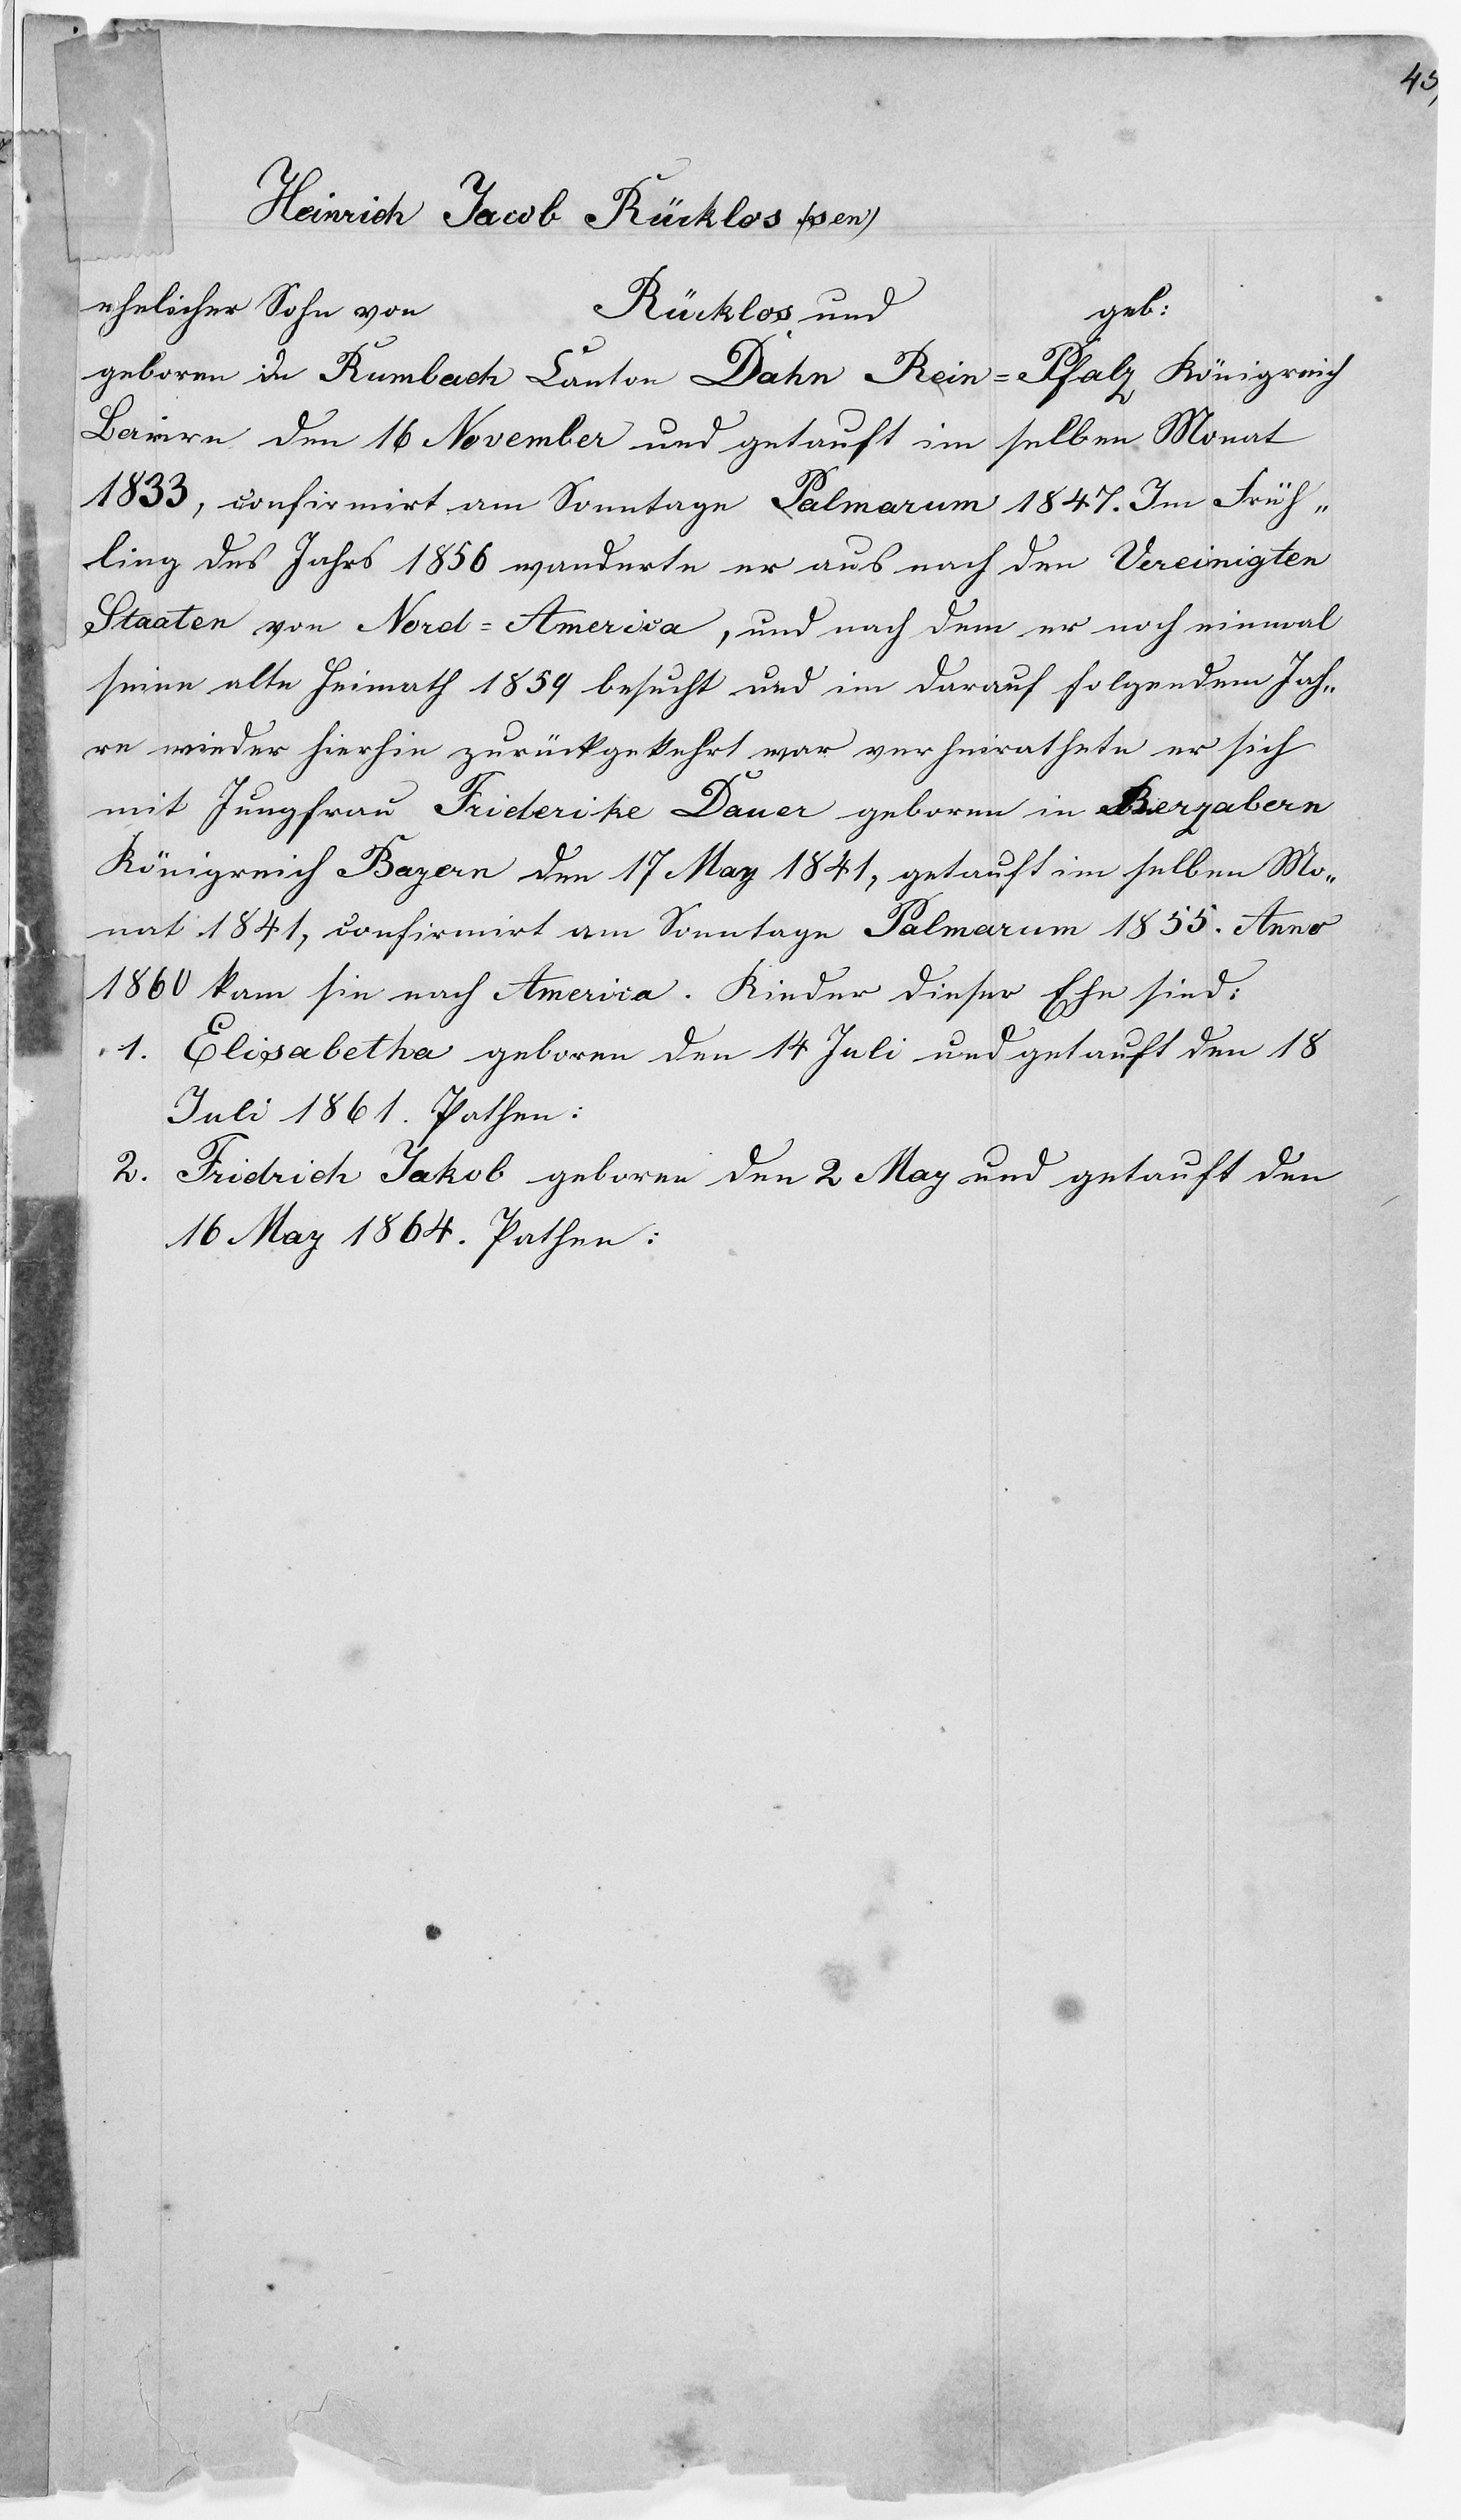 45,
Heinrich Jacob Rücklos (sen)
ehelicher Sohn von Rücklos und geb:
geboren in Rumbach Canton Dahn Rein=Pfalz Königreich
Baiern den 16 November und getauft im selben Monat
1833, confirmirt am Sonntage Palmarum 1847. Im Früh„
ling des Jahrs 1856 wanderte er aus nach den Vereinigten
Staaten von Nord=America, und nach dem er noch einmal
seine alte Heimath 1859 besucht und im darauf folgendem Jah„
re wieder hierhin zurückgekehrt war verheirathete er sich
mit Jungfrau Friderike Dauer geboren in Berzabern
Königreich Bayern den 17 May 1841, getauft im selben Mo„
nat 1841, confirmirt am Sonntage Palmarum 1855. Anno
1860 kam sie nach America. Kinder dieser Ehe sind:
1. Elisabetha geboren den 14 Juli und getauft den 18
Juli 1861. Pathen:
2. Fridrich Jakob geboren den 2 May und getauft den
16 May 1864. Pathen: